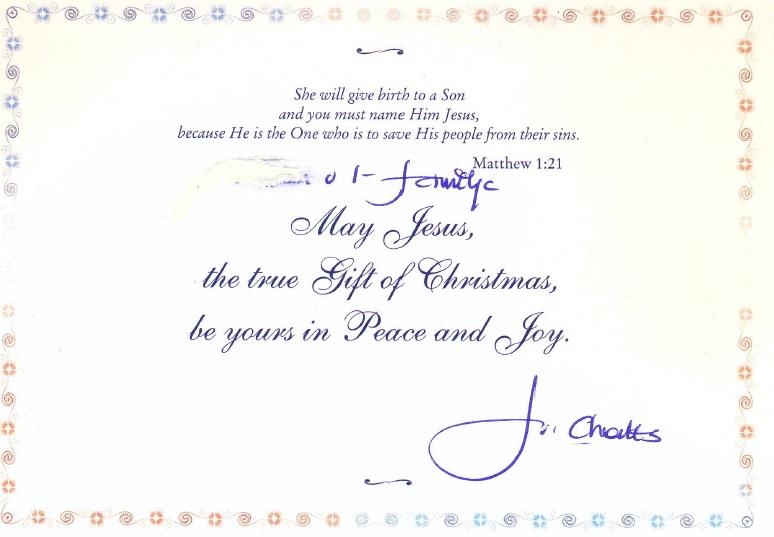 She will give birth to a Son
and you must name Him Jesus,
because He is the One who is to save His people from their sins.
Matthew 1:21
family
May Jesus,
the true Gift of Christmas,
be yours in Peace and Joy.